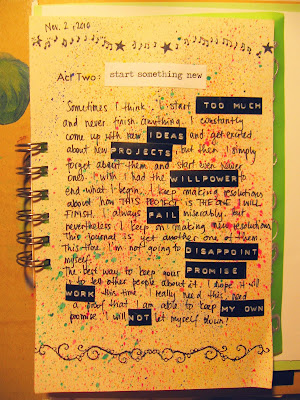 Nov. 2, 2010
Act Two: start something new
Sometimes I think I start TOO MUCH
and never finish anything. I constantly
come up with new IDEAS and get excited
about new PROJECTS, but then I simply
forget about them and start even newer
ones. I wish I had the WILLPOWER to
end what I begin. I keep making resolutions
about how THIS PROJECT IS THE ONE I WILL
FINISH. I always FAIL miserably, but
nevertheless I keep on making new resolutions.
This journal is yet another one of them.
This time I'm not going to DISAPPOINT
myself.
The best way to keep your PROMISE
is to tell other people about it. I hope it will
WORK this time. I really need this, need
a proof that I am able to keep MY OWN
promise. I will NOT let myself down!